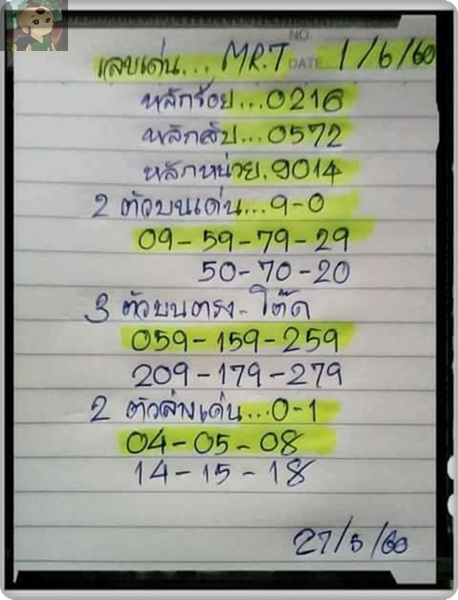 NO.
เลขเด่น... MR.T DATE 1/6/60
หลักร้อย...0216
หลักสิบ...0572
หลักหน่วย.9014
2 ตัวบนเด่น...9-0
09-59-79-29
50-70-20
3 ตัวบนตรง-โต๊ด
059-159-259
209-179-279
2 ตัวล่างเด่น...0-1
04-05-08
14-15-18
27/5/60